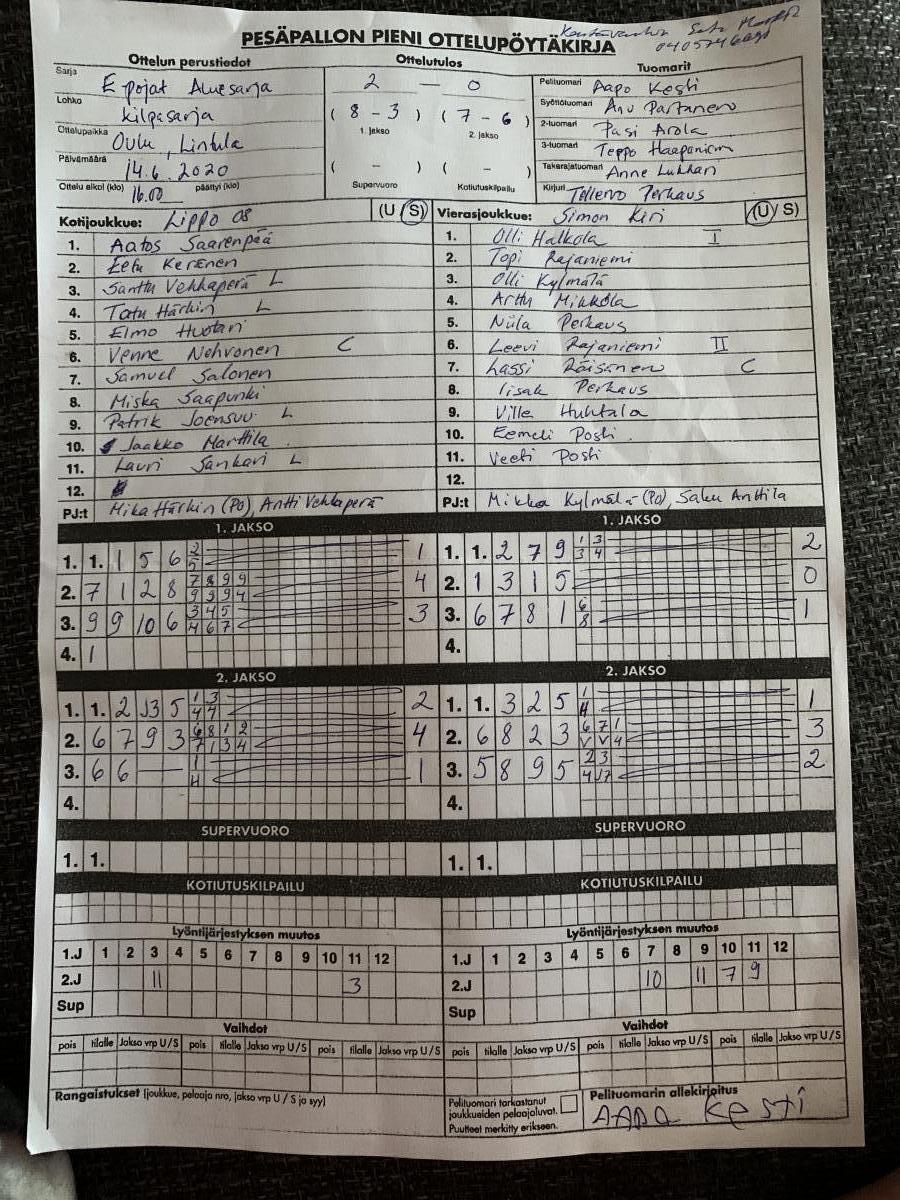 PESÄPALLON PIENI OTTELUPÖYTÄKIRJA
Ottelun perustiedot
Sarja E-pojat Aluesarja
Lohko kilpasarja
Ottelupaikka Oulu, Lintula
Päivämäärä 14.6.2020
Ottelu alkoi (klo) 16.00 päättyi (klo)
Ottelutulos
2 — 0
( 8 - 3 ) ( 7 - 6 )
1. jakso 2. jakso
( - ) ( - )
Supervuoro Kotiutuskilpailu
Tuomarit
Pelituomari Aapo Kesti
Syöttötuomari Anu Partanen
2-tuomari Pasi Arola
3-tuomari Teppo Haapaniemi
Takarajatuomari Anne Lukkari
Kirjuri Tellervo Perhaus
Kotijoukkue: Lippo 08 (U / S)
1. Aatos Saarenpää
2. Eetu Keränen
3. Santtu Vehkaperä L
4. Tatu Härkin L
5. Elmo Huotari
6. Venne Nehvonen C
7. Samuel Salonen
8. Miska Saapunki
9. Patrik Joensuu L
10. Jaakko Marttila
11. Lauri Sankari L
12.
PJ:t Mika Härkin (PO), Antti Vehkaperä
Vierasjoukkue: Simon Kiri (U / S)
1. Olli Halkola I
2. Topi Rajaniemi
3. Olli Kylmälä
4. Arttu Mikkola
5. Niila Perhaus
6. Leevi Rajaniemi II
7. Lassi Räisänen C
8. Iisak Perhaus
9. Ville Huhtala
10. Eemeli Posti
11. Veeti Posti
12.
PJ:t Mikka Kylmälä (PO), Saku Anttila
1. JAKSO
1. 1. 1 5 6 2 5 1
2. 7 1 2 8 7 8 9 9 9 9 9 4 4
3. 9 9 10 6 3 4 5 4 6 7 3
4. 1
1. JAKSO
1. 1. 2 7 9 1 3 3 4 2
2. 1 3 1 5 0
3. 6 7 8 1 6 8 1
4.
2. JAKSO
1. 1. 2 J3 5 1 3 4 4 2
2. 6 7 9 3 6 8 1 2 7 1 3 4 4
3. 6 6 — 1 H 1
4.
2. JAKSO
1. 1. 3 2 5 1 H 1
2. 6 8 2 3 6 7 1 V V 4 3
3. 5 8 9 5 2 3 4 J7 2
4.
SUPERVUORO
1. 1.
SUPERVUORO
1. 1.
KOTIUTUSKILPAILU
KOTIUTUSKILPAILU
Lyöntijärjestyksen muutos
1.J 1 2 3 4 5 6 7 8 9 10 11 12
2.J 11 3
Sup
Lyöntijärjestyksen muutos
1.J 1 2 3 4 5 6 7 8 9 10 11 12
2.J 10 11 7 9
Sup
Vaihdot
pois tilalle Jakso vrp U/S pois tilalle Jakso vrp U/S pois tilalle Jakso vrp U/S
Vaihdot
pois tilalle Jakso vrp U/S pois tilalle Jakso vrp U/S pois tilalle Jakso vrp U/S
Rangaistukset (joukkue, pelaaja nro, jakso vrp U / S ja syy)
Pelituomari tarkastanut
joukkueiden pelaajaluvat.
Puutteet merkitty erikseen.
Pelituomarin allekirjoitus
AAPO KESTI